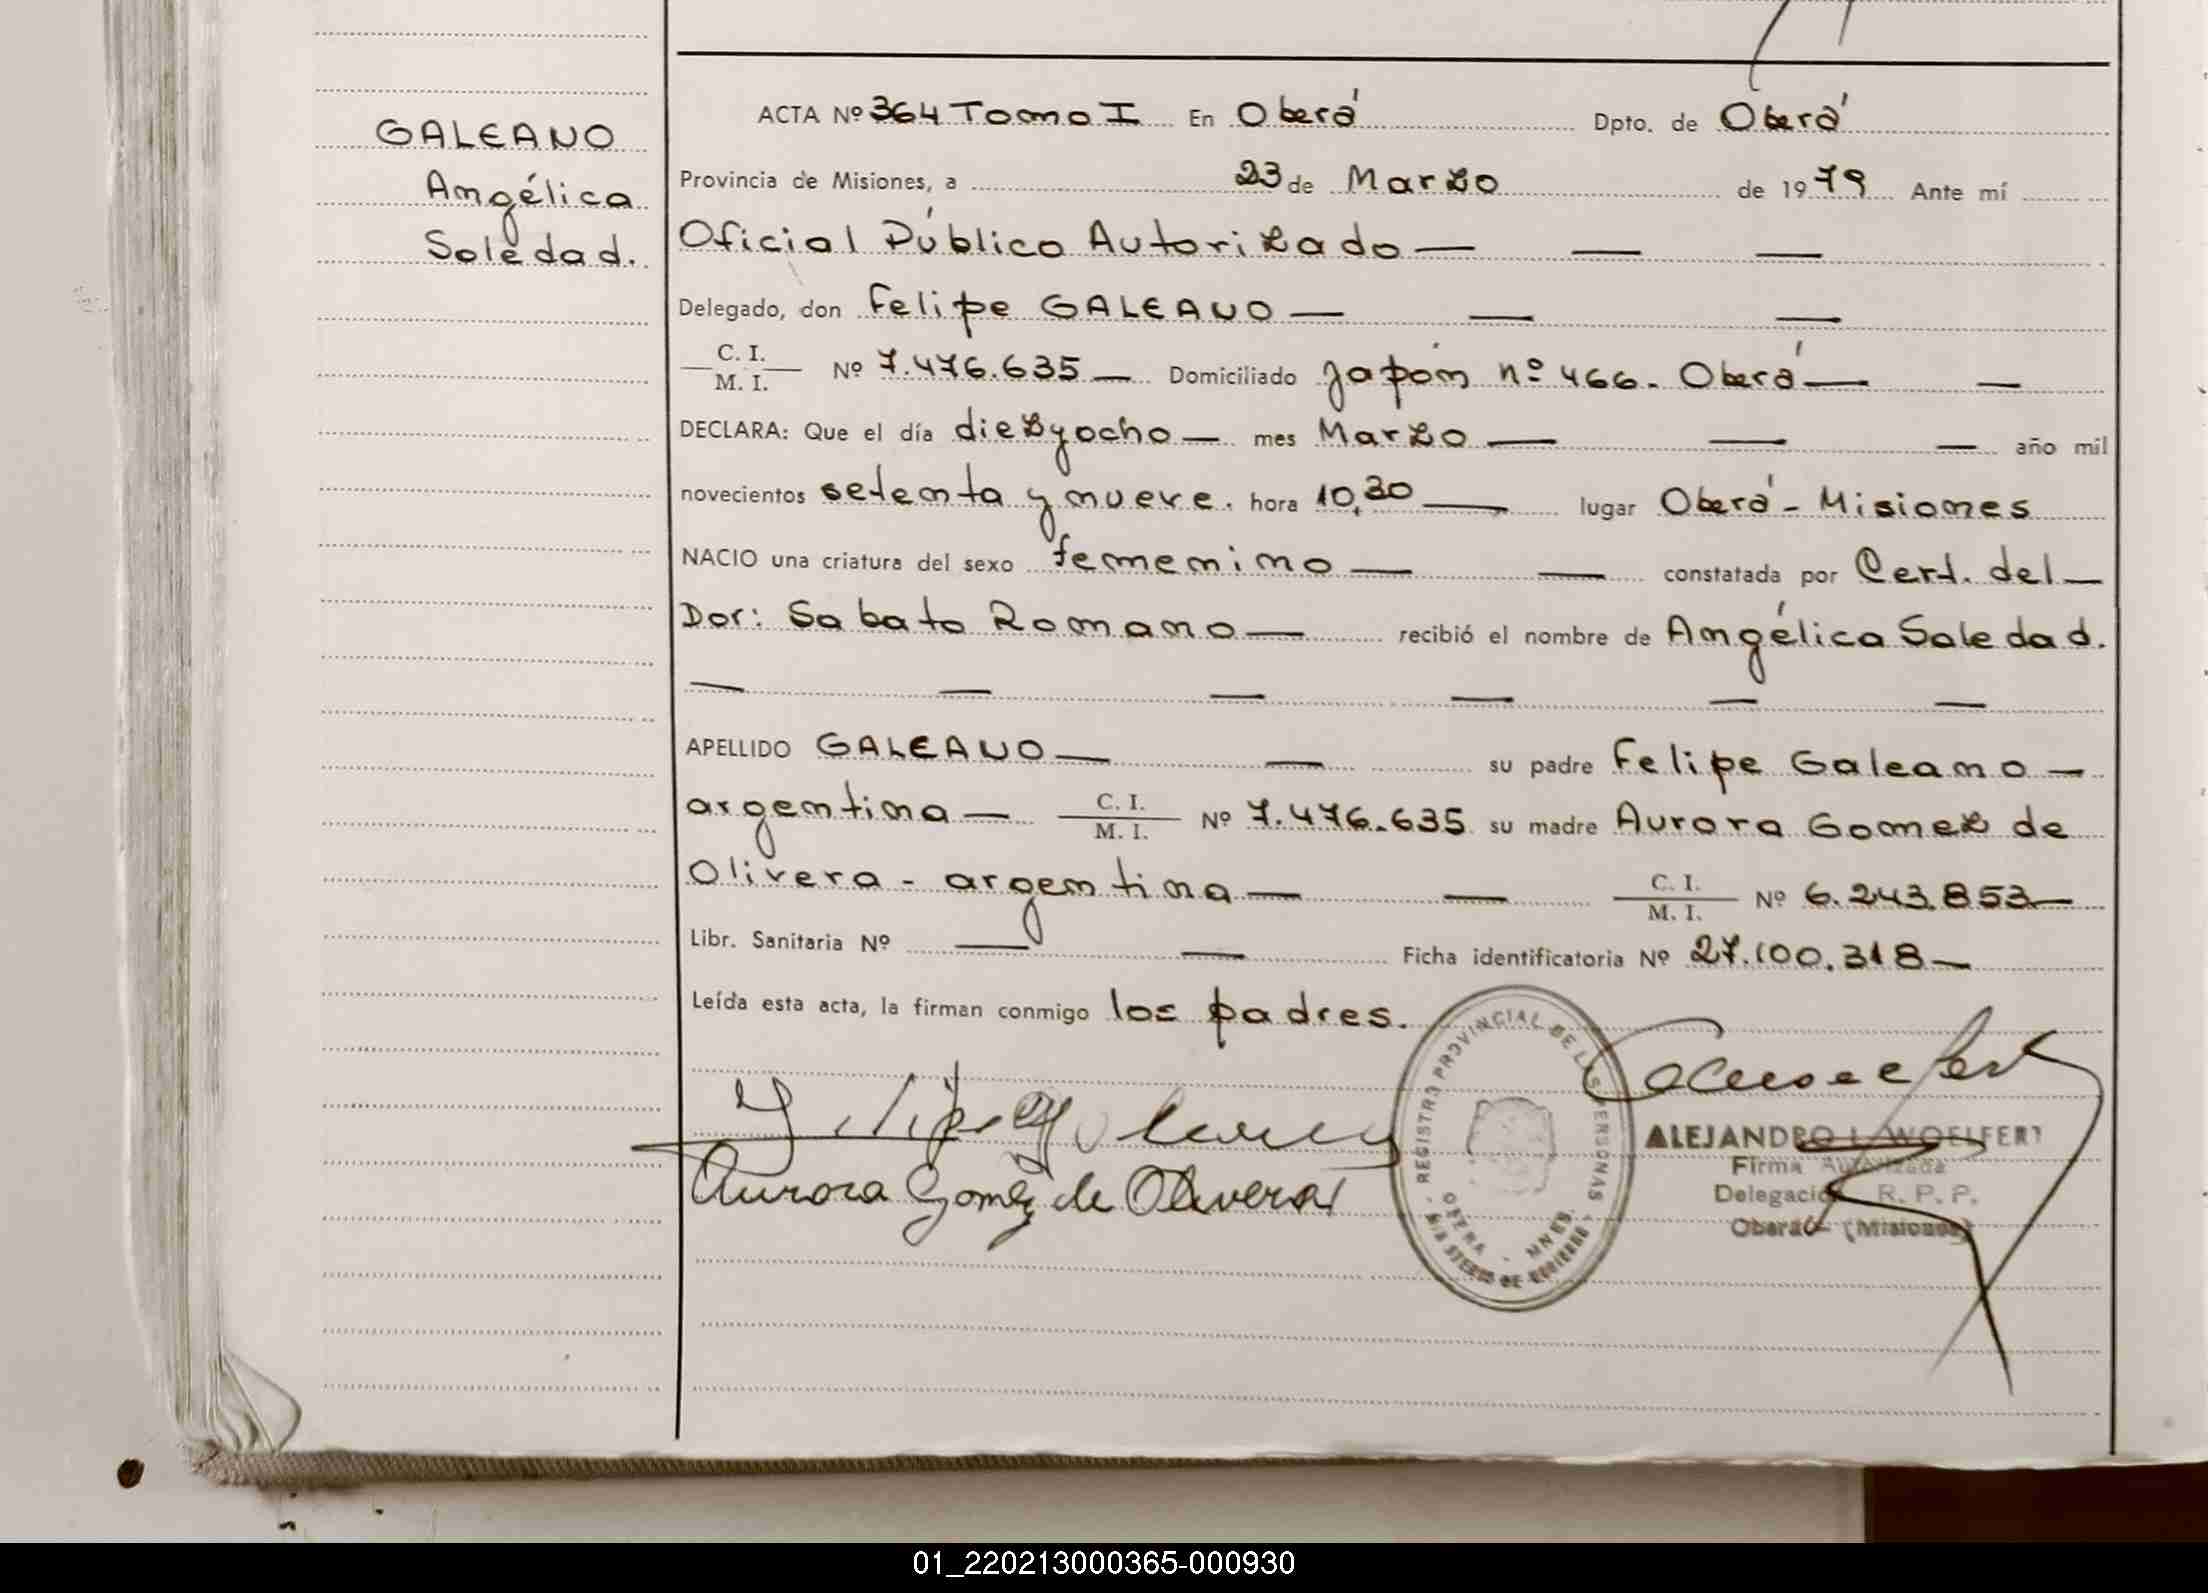 GALEANO
Angélica
Soledad.
ACTA Nº 364 Tomo I En Oberá Dpto. de Oberá
Provincia de Misiones, a 23 de Marzo de 1979 Ante mí
Oficial Público Autorizado — — —
Delegado, don Felipe GALEANO — — —
C. I. / M. I. Nº 7.476.635 — Domiciliado Japón nº 466. Oberá — —
DECLARA: Que el día diezyocho — mes Marzo — — — año mil
novecientos setenta y nueve. hora 10,30 — lugar Oberá - Misiones
NACIO una criatura del sexo femenino — — constatada por Cert. del —
Dor: Sabato Romano — recibió el nombre de Angélica Soledad.
— — — — — —
APELLIDO GALEANO — — su padre Felipe Galeano —
argentina — C. I. / M. I. Nº 7.476.635 su madre Aurora Gomez de
Olivera - argentina — — C. I. / M. I. Nº 6.243.853 —
Libr. Sanitaria Nº — — Ficha identificatoria Nº 27.100.318 —
Leída esta acta, la firman conmigo los padres.
Aurora Gomez de Olivera
REGISTRO PROVINCIAL DE LAS PERSONAS
OBERA - MNES.
MINISTERIO DE GOBIERNO
ALEJANDRO L. WOELFERT
Firma Autorizada
Delegación R. P. P.
Oberá - (Misiones)
01_220213000365-000930